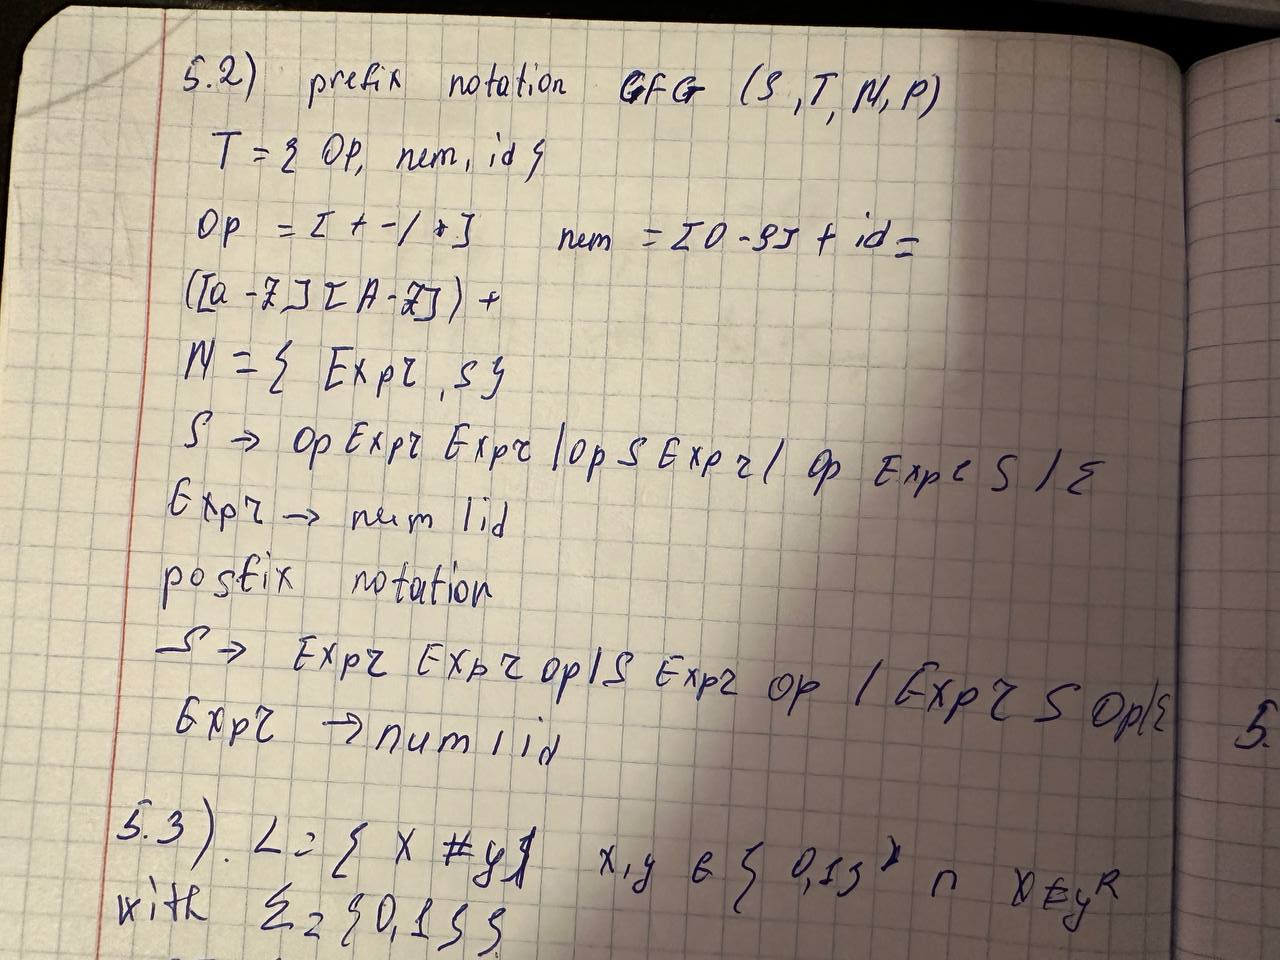 5.2) prefix notation CFG (S, T, N, P)
T = { Op, num, id }
Op = [ + - / * ] num = [0-9] + id =
([a-z] [A-Z]) +
N = { Expr, S }
S → Op Expr Expr | Op S Expr | Op Expr S | ε
Expr → num | id
postfix notation
S → Expr Expr Op | S Expr Op | Expr S Op | ε
Expr → num | id
5.
5.3). L = { x # y } x, y ∈ { 0,1 }* ∩ x ≠ y^R
with Σ = { 0,1 } }